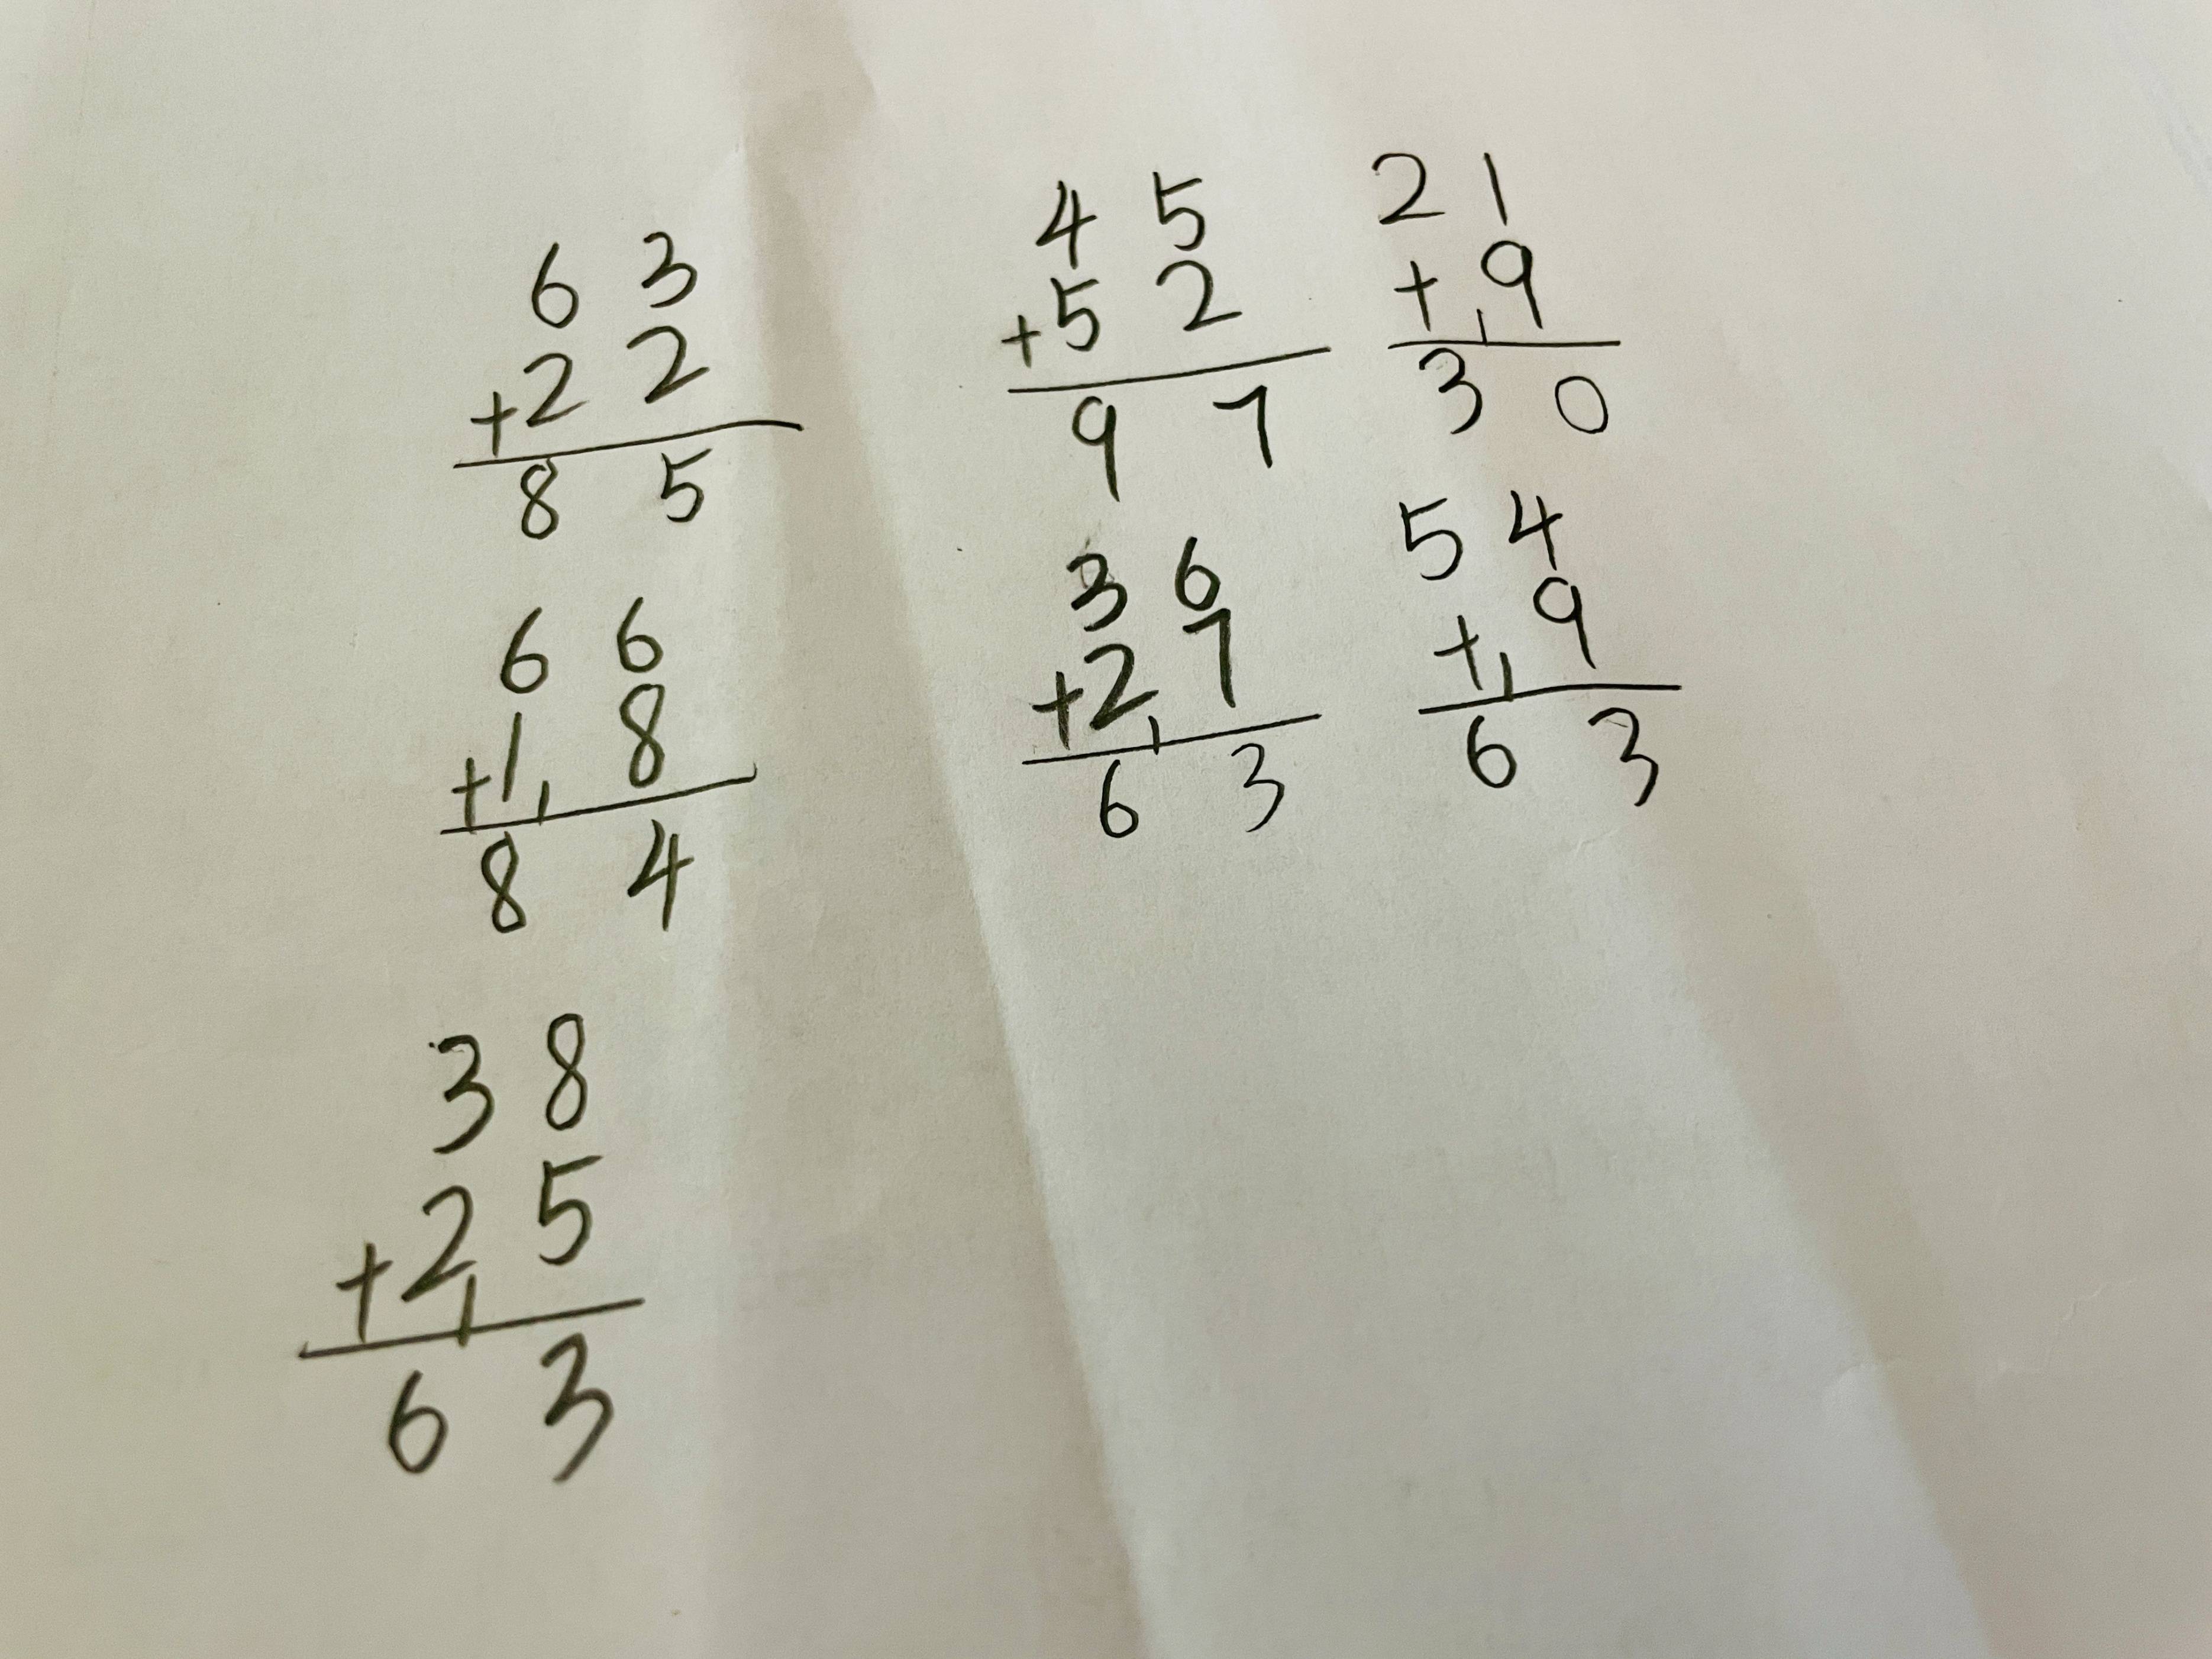 63
+22
85
45
+52
97
21
+1 9
30
66
+11 8
84
36
+21 7
63
54
+1 9
63
38
+21 5
63